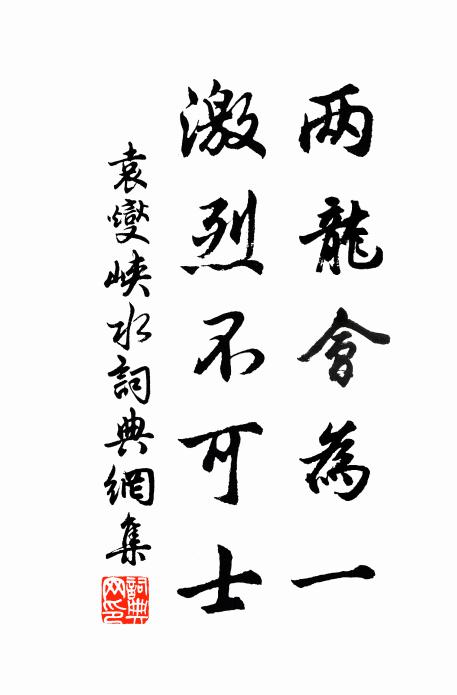 两龍會為一
激烈不可士
袁燮峽水詞典網集
詞典網印